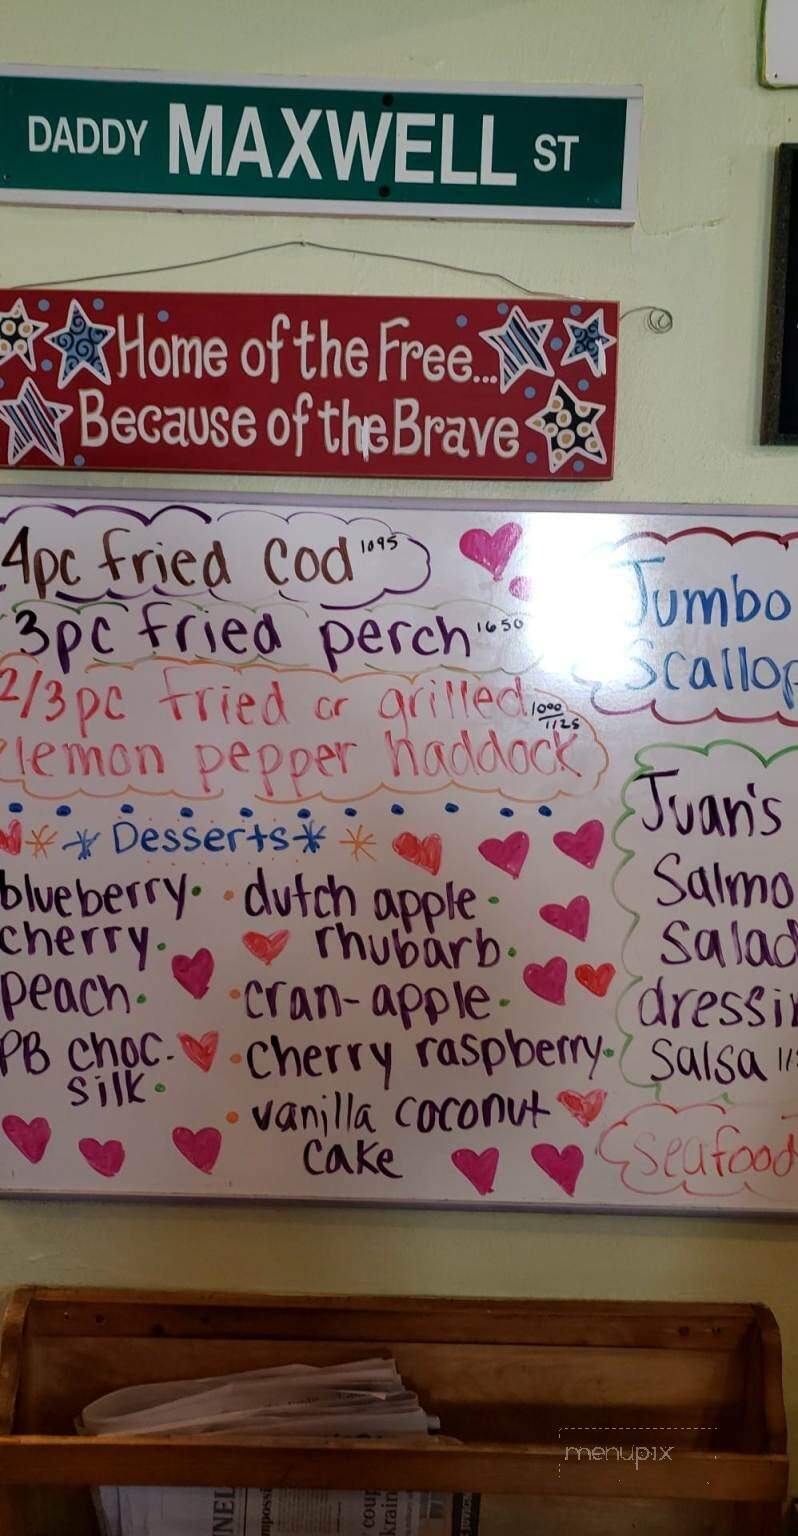 DADDY MAXWELL ST
Home of the Free...
Because of the Brave
4pc fried cod 1095
3pc fried perch 1650
2/3pc fried or grilled 1000/1125
lemon pepper haddock
*Desserts*
blueberry
cherry
peach
PB choc.
silk
dutch apple
rhubarb
cran-apple
cherry raspberry
vanilla coconut
cake
Jumbo
Scallop
Juan's
Salmo
Salad
dressin
Salsa
Seafood
menupix